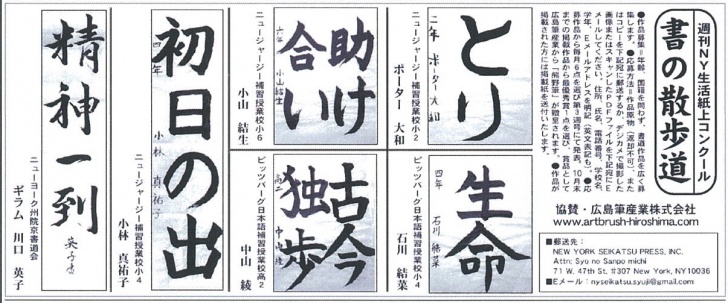 週刊NY生活紙上コンクール
書の散歩道
●作品募集=年齢、国籍を問わず、書道作品を広く募
集します。●応募方法=作品原物(返却不可)、また
はコピーを下記宛に郵送するか、デジカメで撮影した
画像またはスキャンしたPDFファイルを下記宛にE
メールしてください。住所、氏名、電話番号、学校名、
学年、Eメールアドレスを明記(英文表記も)。●応
募作品から毎月6点を選び第3週号にて発表。10月末
までの掲載作品から最優秀賞1点を選び、賞品として
広島筆産業から「熊野筆」が贈呈されます。●作品が
掲載された方には掲載紙を送付いたします。
協賛・広島筆産業株式会社
www.artbrush-hiroshima.com
■郵送先:
NEW YORK SEIKATSU PRESS, INC.
Attn: Syo no Sanpo michi
71 W. 47th St. #307 New York, NY10036
■Eメール:nyseikatsu.syuji@gmail.com
とり
二年 ポーター大和
ニュージャージー補習授業校小2
ポーター 大和
生命
四年 石川結菜
ピッツバーグ日本語補習授業校小4
石川 結菜
助け
合い
六年 小山結生
ニュージャージー補習授業校小6
小山 結生
古今
独歩
高二 中山綾
ピッツバーグ日本語補習授業校高2
中山 綾
初日の出
四年 小林真祐子
ニュージャージー補習授業校小4
小林 真祐子
精神一到
英子書
ニューヨーク州院京書道会
ギラム 川口 英子